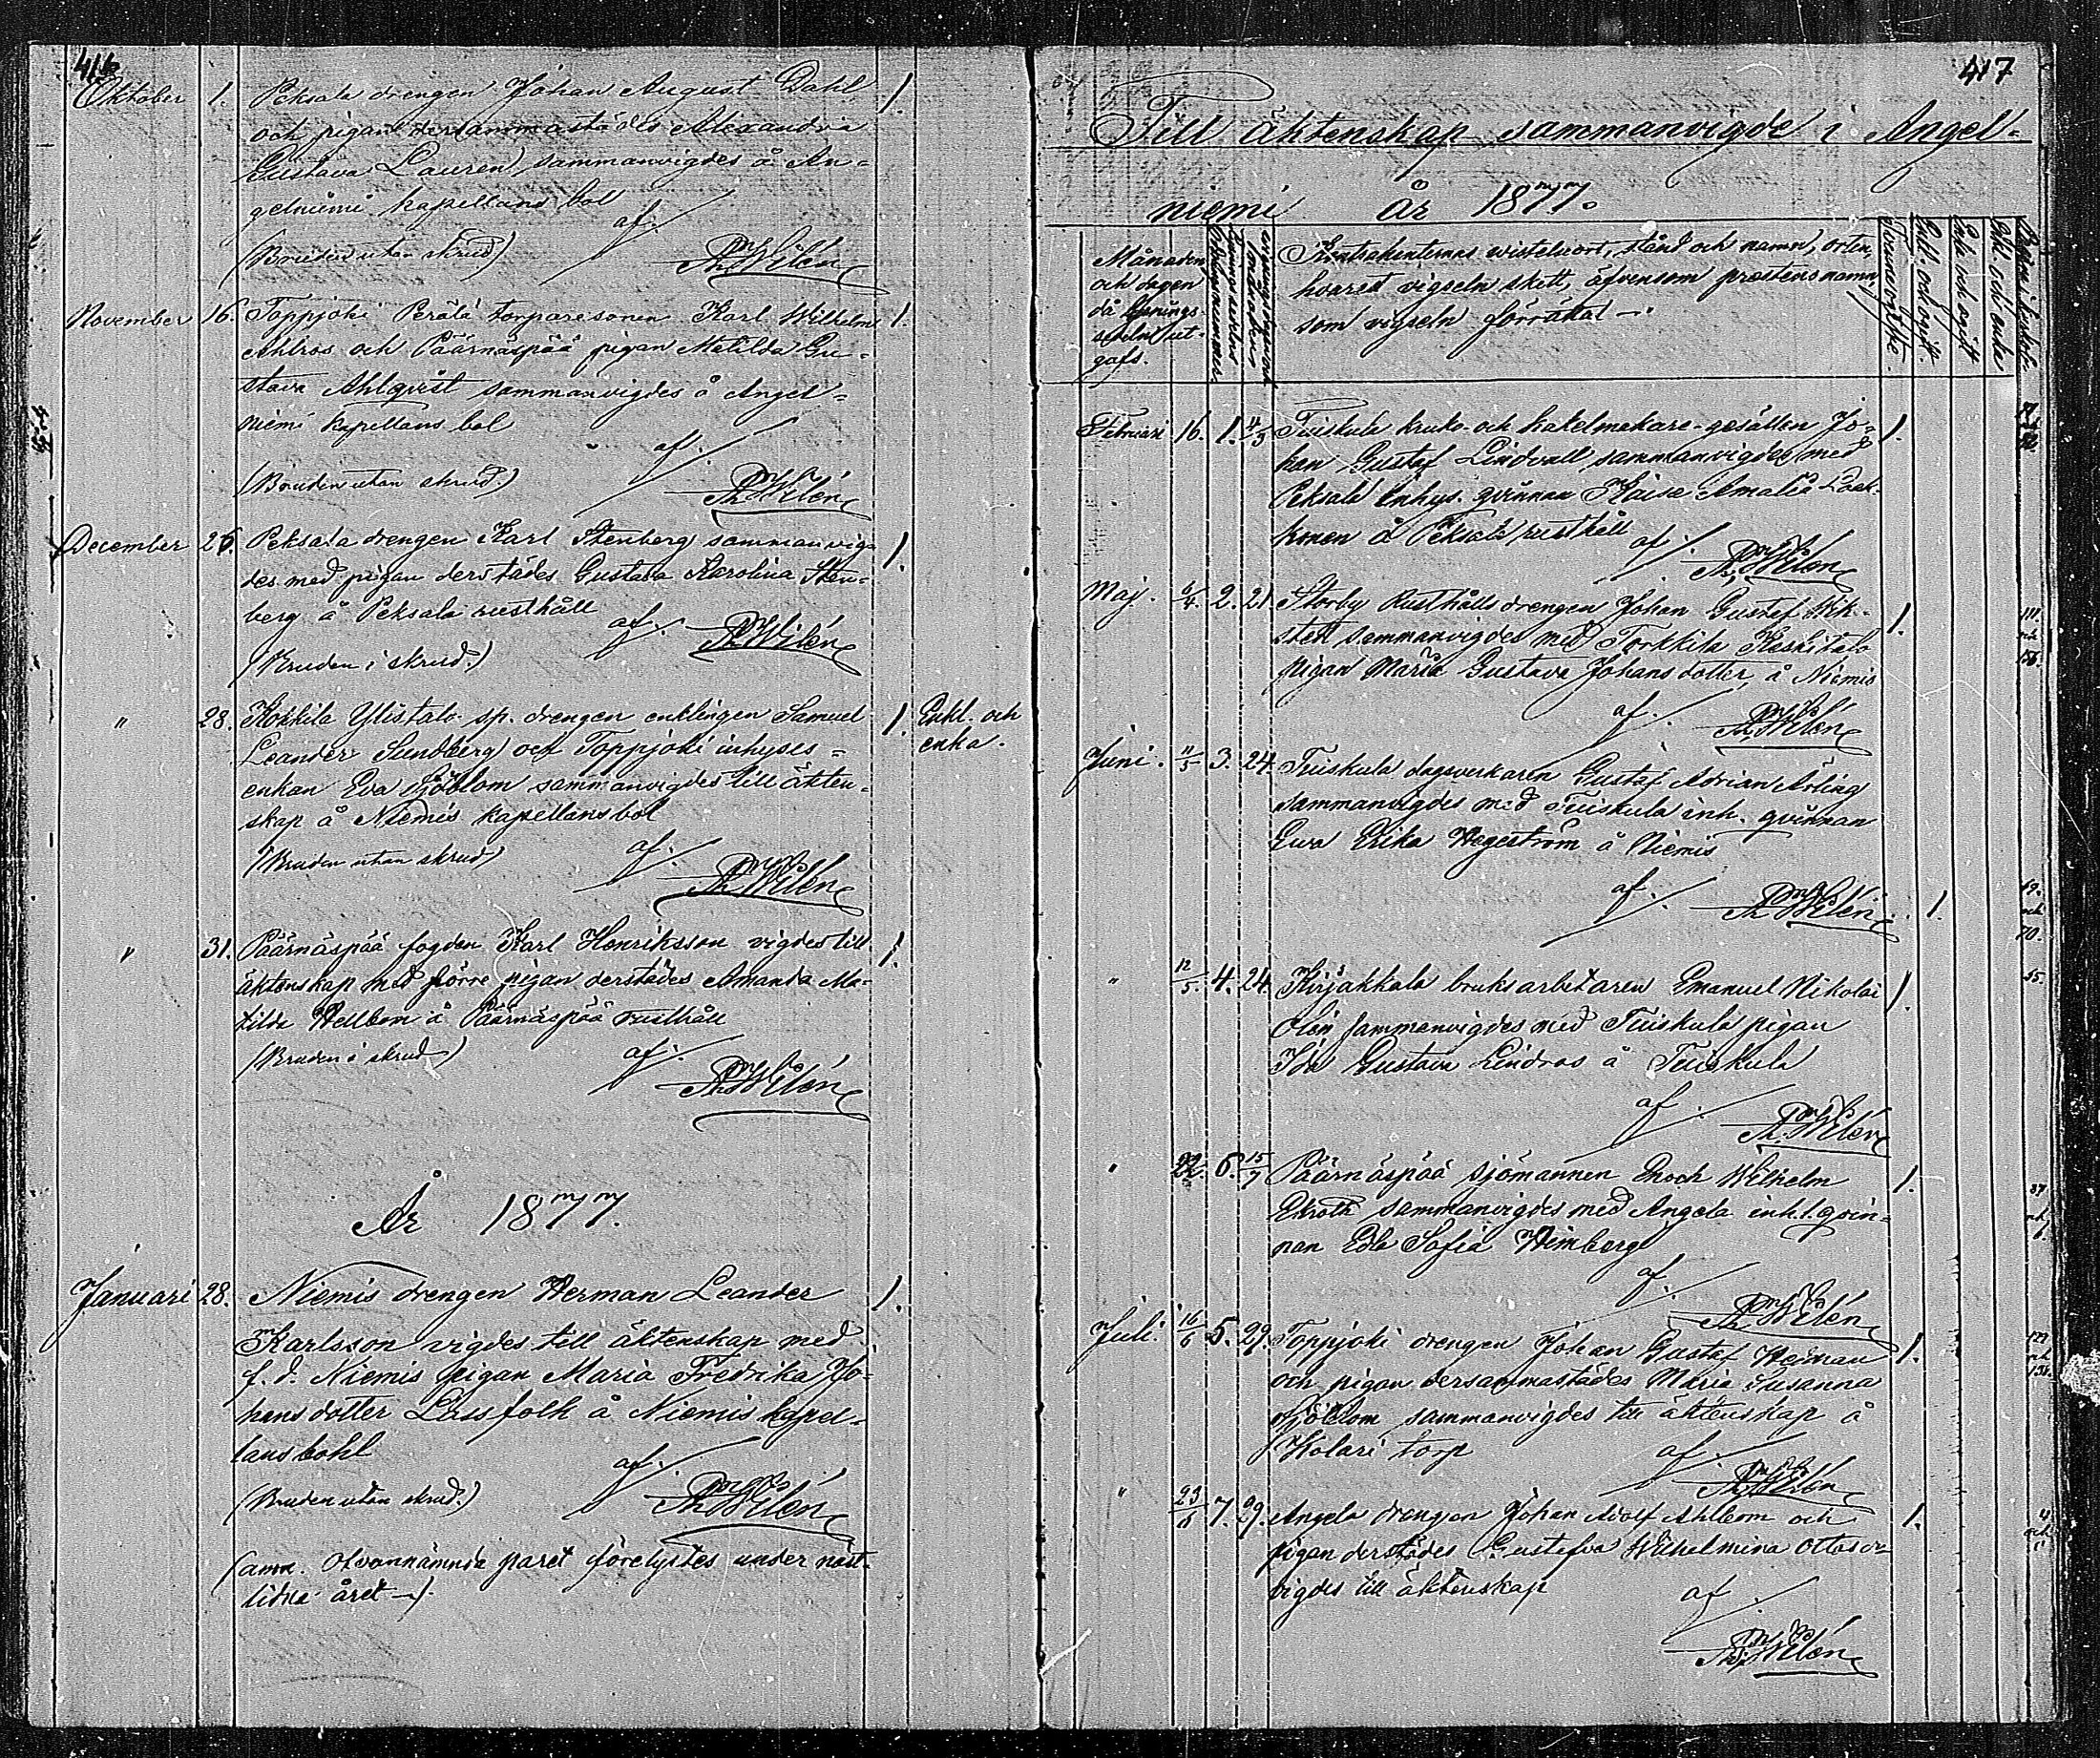 416
Oktober 1. Peksala drengen Johan August Dahl 1.
och pigan dersammastädes Alexandra
Gustava Lauren sammanvigdes å An-
gelniemi kapellans bol
af
(Bruden utan skrud) Wilén
November 16. Toppjoki Perälä torparesonen Karl Wilhelm 1.
Ahlros och Päärnäspää pigan Matilda Gu-
stava Ahlqvist sammanvigdes å Angel-
niemi kapellans bol
af
(Bruden utan skrud.) Wilén
December 26. Peksala drengen Karl Stenberg sammanvig- 1.
des med pigan derstädes Gustava Karolina Sten-
berg å Peksala rusthåll
af Wilén
(Bruden i skrud.)
" 28. Kokkila Ylistalo sp. drengen enklingen Samuel 1. Enkl. och
Leander Sundberg och Toppjoki inhyses- enka.
enkan Eva Sjöblom sammanvigdes till äkten-
skap å Niemis kapellans bol
(Bruden utan skrud) af
Wilén
" 31. Päärnäspää fogden Karl Henriksson vigdes till 1.
äktenskap med förre pigan derstädes Amanda Ma-
tilda Hellbom å Päärnäspää rusthåll
(Bruden i skrud) af
Wilén
År 1877.
Januari 28. Niemis drengen Herman Leander 1.
Karlsson vigdes till äktenskap med
f. d. Niemis pigan Maria Fredrika Jo-
hansdotter Lassfolk å Niemis kapel-
lans bohl
af
(Bruden utan skrud.) Wilén
(anm. Ofvannämnda paret förelystes under näst-
lidna året —).
417
Till äktenskap sammanvigde i Angel-
niemi år 1877.
Månaden
och dagen
då lysnings-
sedeln ut-
gafs.
Kontrahenternas vistelseort, stånd och namn, orten,
hvarest vigseln skett, äfvensom prestens namn,
som vigseln förrättat —
Enkl. och ogift.
Enka och ogift
Enkl. och enka
Februari 16. 1. 4/3 Tuiskula kruko- och kakelmakare-gesällen Jo- 1.
han Gustaf Lindvall sammanvigdes med
Peksala inhys. qvinnan Kaisa Amalia
å Peksala rusthåll
af
Wilén
Maj. 6/4 2. 21. Storby Rusthålls drengen Johan Gustaf Wik- 1.
stedt sammanvigdes med Torkkila Keskitalo
pigan Maria Gustava Johansdotter å Niemis
af
Wilén
Juni. 11/5 3. 24. Tuiskula dagsverkaren Gustaf Adrian Arling
sammanvigdes med Tuiskula inh. qvinnan
Eva Erika Hegeström å Niemis
af
Wilén 1.
" 12/5 4. 24. Kirjakkala bruksarbetaren Emanuel Nikolai 1.
Olén sammanvigdes med Tuiskula pigan
Ida Gustava Lindros å Tuiskula
af
Wilén
" 22. 6. 15/7 Päärnäspää sjömannen Enoch Wilhelm 1.
Ekroth sammanvigdes med Angela inh. qvin-
nan Edla Sofia Wimberg
af
Wilén
Juli. 16/6 5. 29. Toppjoki drengen Johan Gustaf Heiman 1.
och pigan dersammastädes Maria Susanna
Sjöblom sammanvigdes till äktenskap å
Kolari torp
af
Wilén
" 23/6 7. 29. Angela drengen Johan Adolf Ahlbom och 1.
pigan derstädes Gustafva Wilhelmina
vigdes till äktenskap
af
Wilén